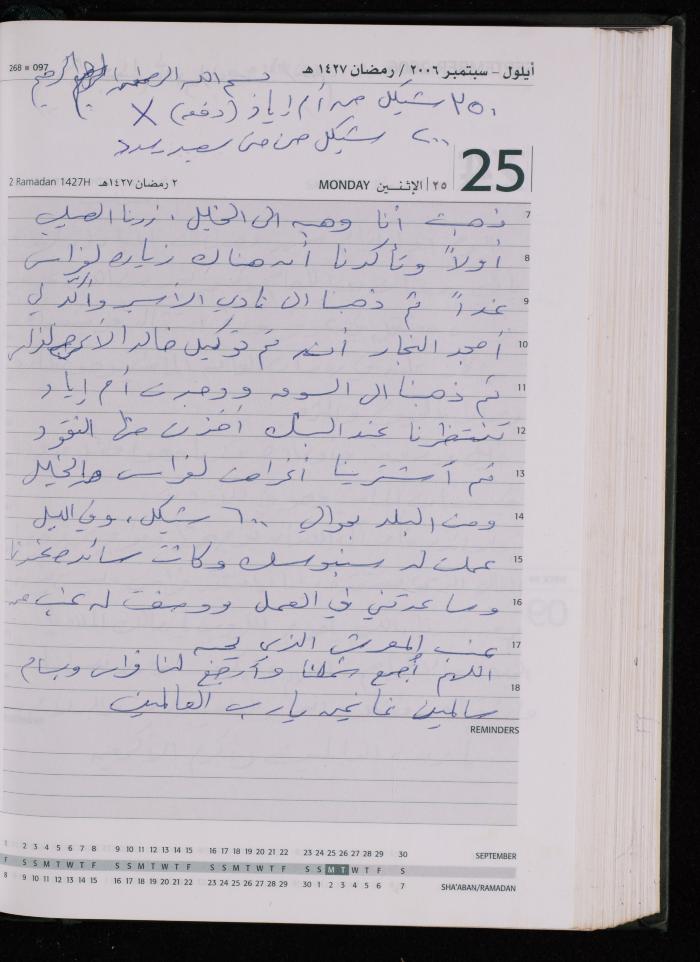 268 ■ 097
أيلول – سبتمبر ٢٠٠٦ / رمضان ١٤٢٧ هـ
بسم الله الرحمن الرحيم
٢٥٠ شيكل من أم إياد (دفعه) X
٢٠٠ شيكل من سعيد يسدد
2 Ramadan 1427H
٢ رمضان ١٤٢٧هـ
MONDAY الإثنين | ٢٥
25
7 ذهبت أنا وهبه الى الخليل، زرنا الصليب
8 أولاً وتأكدنا أنه هناك زياره لفراس
9 غداً ثم ذهبنا الى نادي الأسير وأكد لي
10 أمجد النجار أنه تم توكيل خالد الأعرج
11 ثم ذهبنا الى السوق ووجدت أم إياد
12 تنتظرنا عند البنك أخذت منها النقود
13 ثم أشترينا أغراض لفراس من الخليل
14 ومن البلد بحوالي ٦٠٠ شيكل، وفي الليل
15 عملت له سنبوسك وكانت سائده عندنا
16 وساعدتني في العمل ووضعت له عنب من
17 عنب المعرش الذي يحبه
اللهم أجمع شملنا وأرجع لنا فراس وبسام
18 سالمين غانمين يا رب العالمين
REMINDERS
1 2 3 4 5 6 7 8 9 10 11 12 13 14 15 16 17 18 19 20 21 22 23 24 25 26 27 28 29 30 SEPTEMBER
F S S M T W T F S S M T W T F S S M T W T F S S M T W T F S
8 9 10 11 12 13 14 15 16 17 18 19 20 21 22 23 24 25 26 27 28 29 30 1 2 3 4 5 6 7 SHA'ABAN/RAMADAN